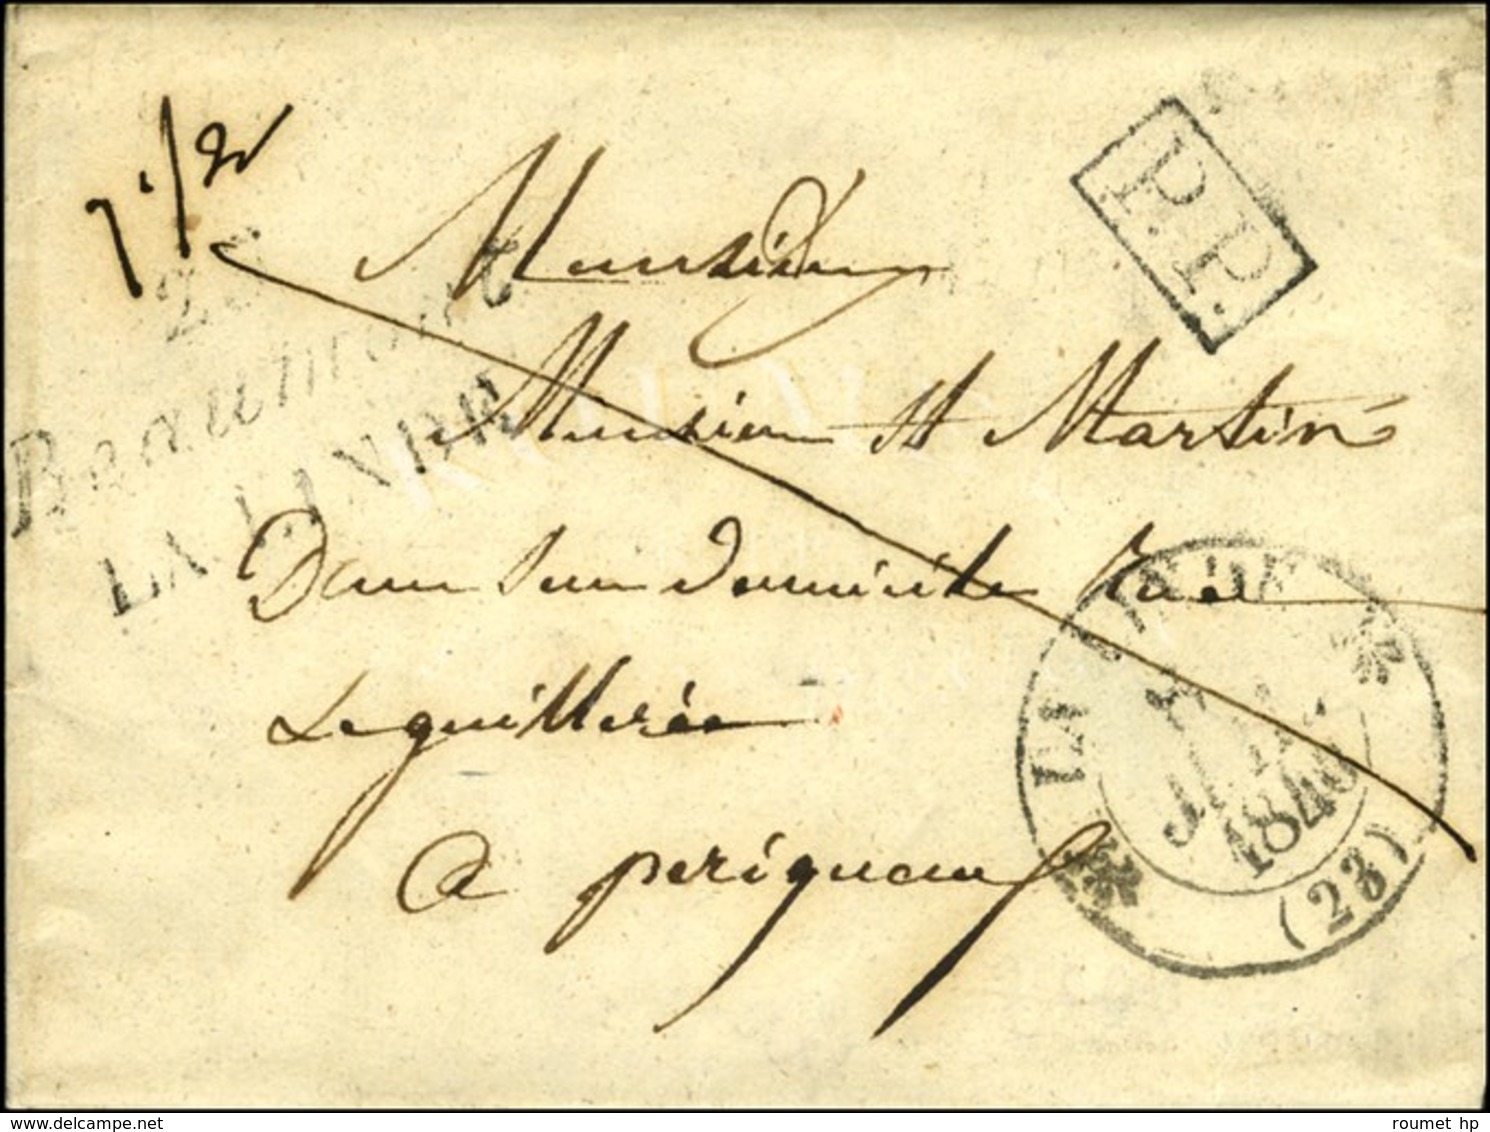 P.P.
Monsieur
Monsieur St Martin
Dans son domicile Rue
Leguillerée
a perigueux
23
Beaumont
LALINDE
LA LINDE
8
JUIL.
1840
(23)
roumet hp